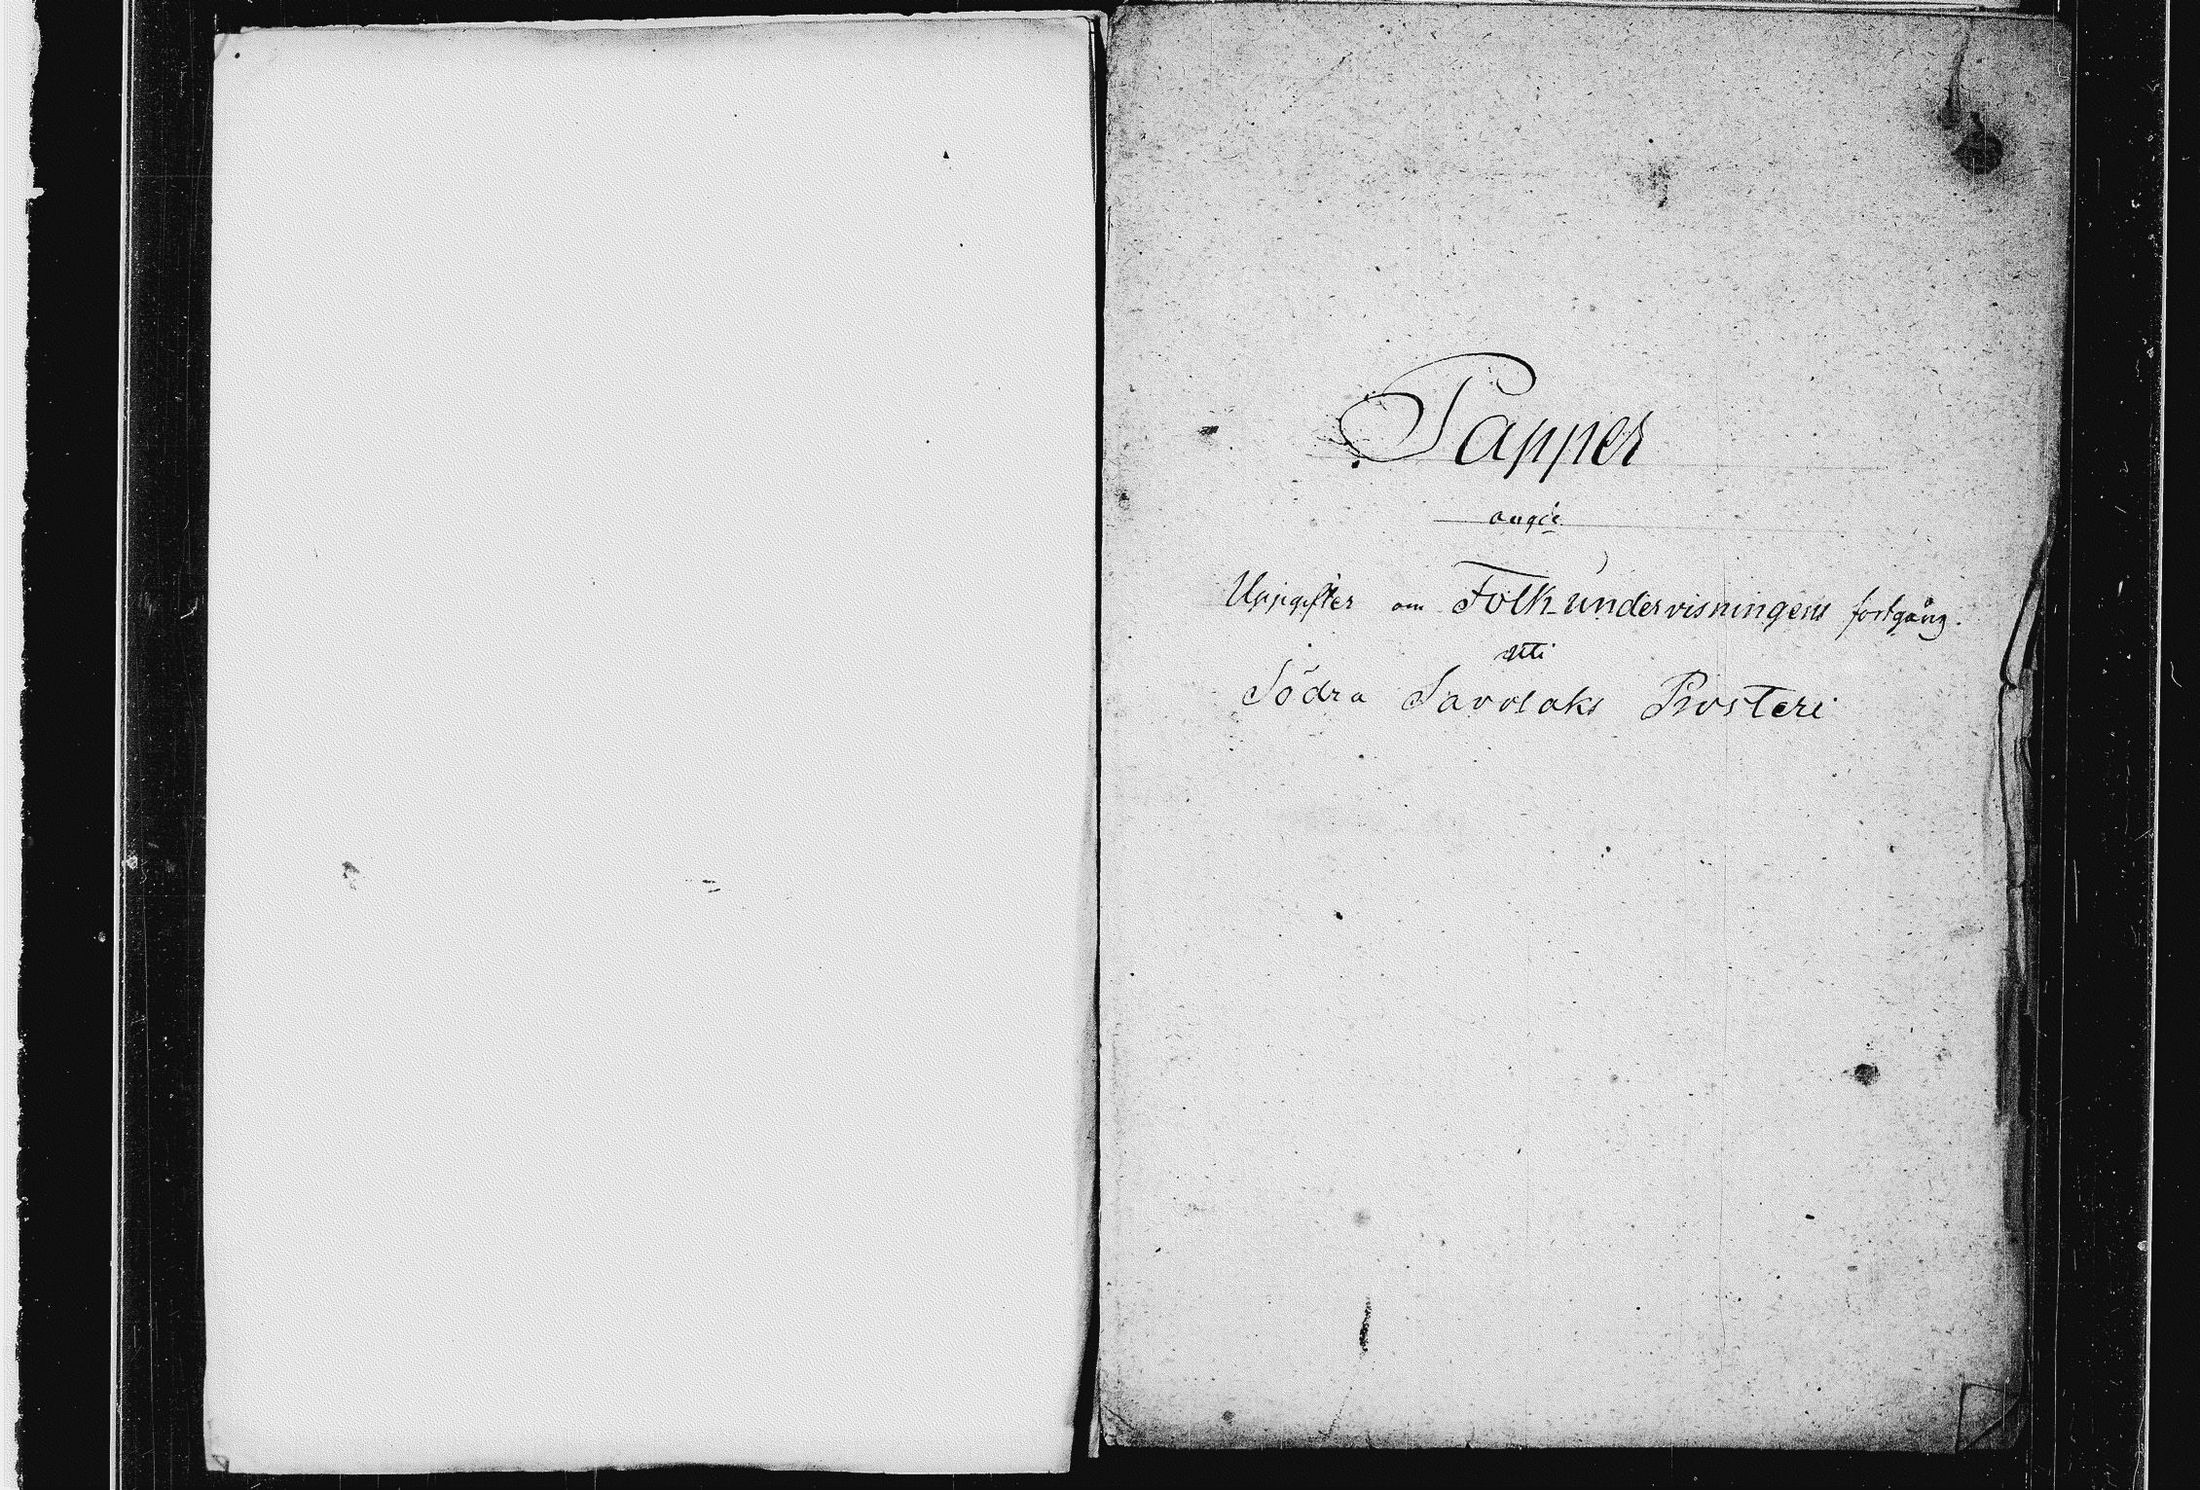 Papper
angå
Uppgifter om Folkundervisningens fortgång.
uti
Södra Savolaks Prosteri